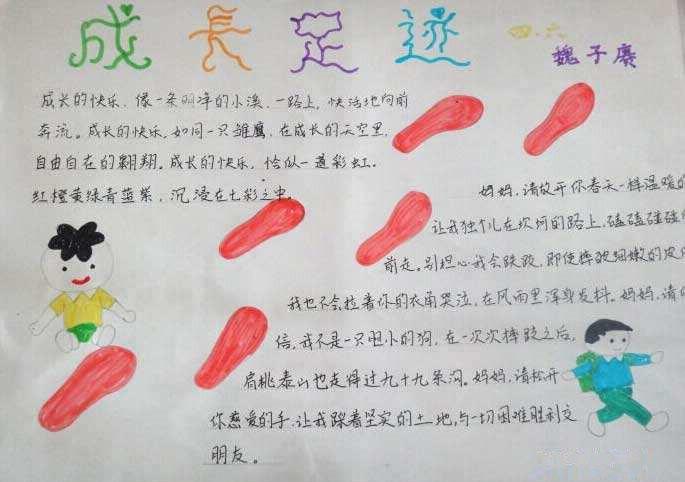 成長足迹
四.六
魏子赓
成长的快乐，像一条明净的小溪，一路上，快活地向前
奔流。成长的快乐，如同一只雏鹰，在成长的天空里，
自由自在的翱翔。成长的快乐，恰似一道彩虹.
红橙黄绿青蓝紫，沉浸在七彩之中。
妈妈，请放开你春天一样温暖的
让我独个儿在坎坷的路上，磕磕碰碰
前走。别担心我会跌跤，即使摔破细嫩的皮
我也不会拉着你的衣角哭泣，在风雨里浑身发抖。妈妈，请
信，我不是一只胆小的狗，在一次次摔跤之后，
肩挑泰山也走得过九十九条沟。妈妈，请松开
你慈爱的手，让我踩着坚实的土地，与一切困难胜利交
朋友。